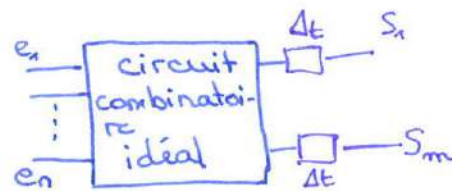 Δt
S₁
e₁
circuit
combinatoi-
re
idéal
en
Δt
Sm